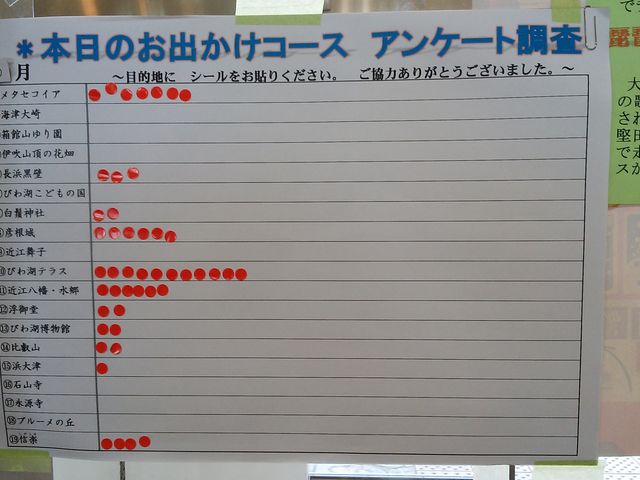 *本日のお出かけコース アンケート調査
月 ~目的地に シールをお貼りください。 ご協力ありがとうございました。~
メタセコイア
海津大崎
箱館山ゆり園
伊吹山頂の花畑
長浜黒壁
びわ湖こどもの国
白鬚神社
彦根城
近江舞子
びわ湖テラス
⑪近江八幡・水郷
⑫浮御堂
⑬びわ湖博物館
⑭比叡山
⑮浜大津
⑯石山寺
⑰永源寺
⑱ブルーメの丘
⑲信楽
で
琵
大
の
され
堅田
で走
スが